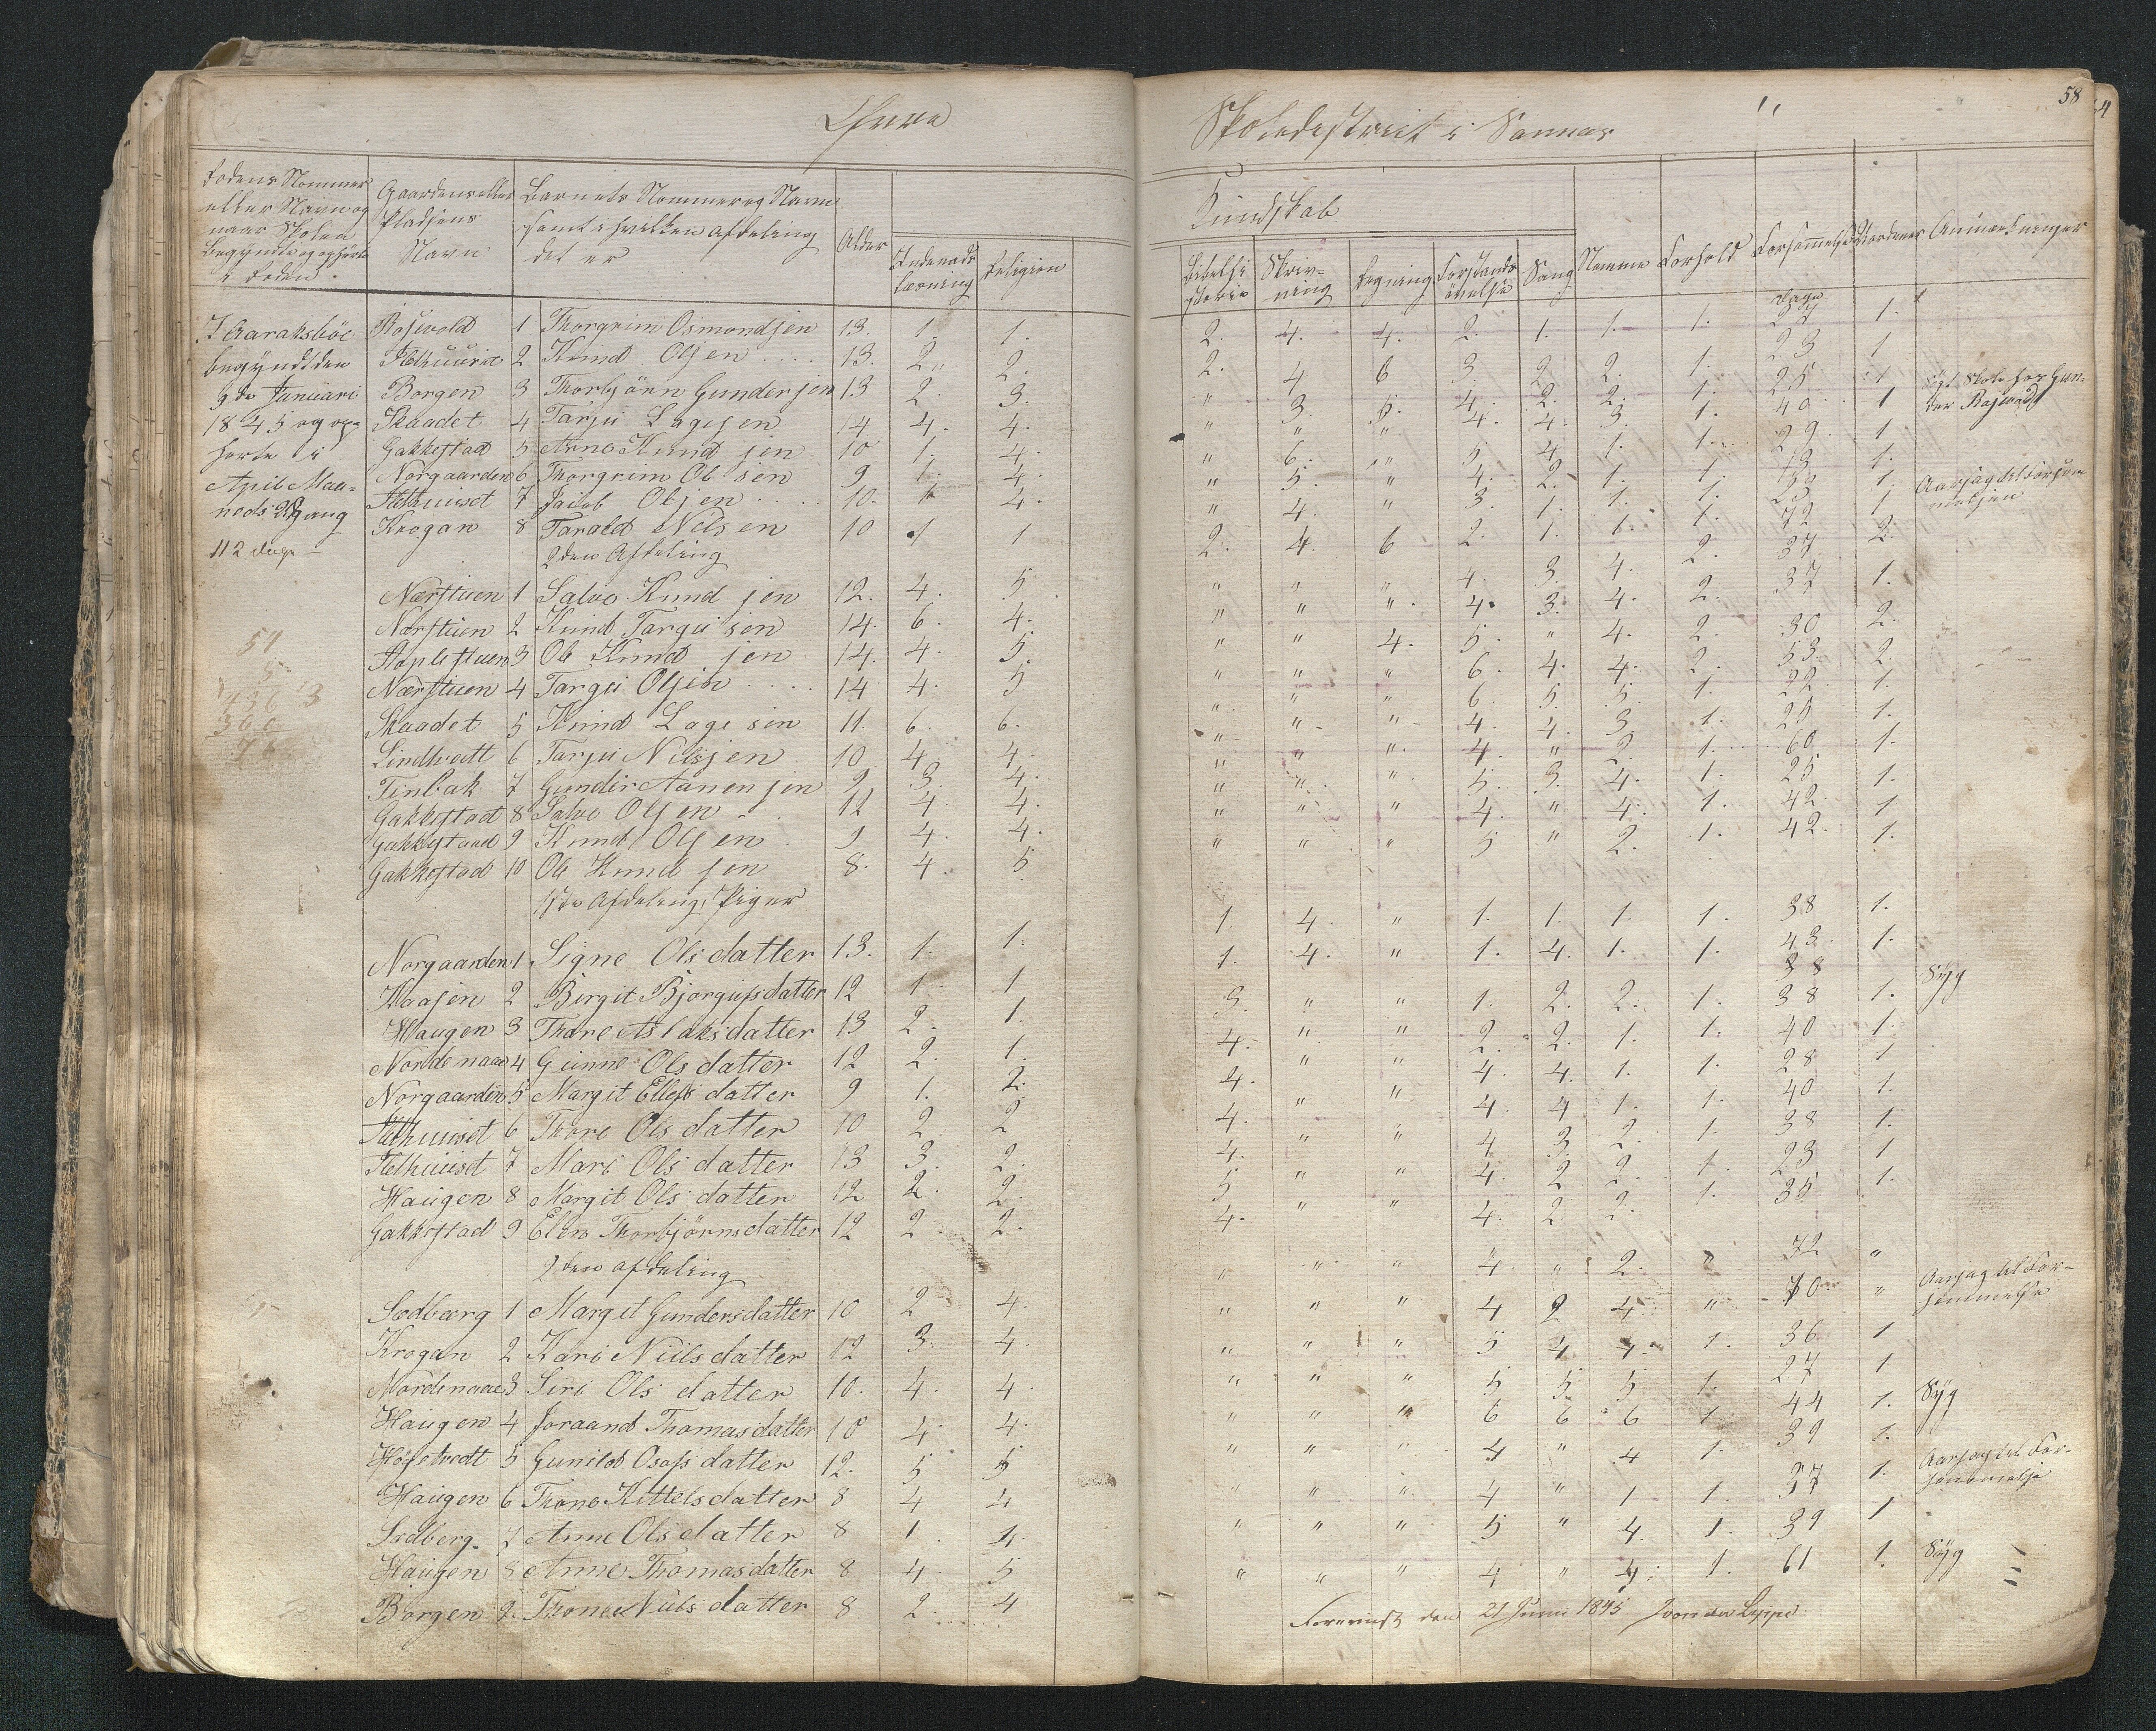 58
Skoledistrict i Sannes
Rodens Nommer
eller Navn og
naar Skolen
begyndte og ophørte
i Roden.
Gaardens eller
Pladsens
Navn
Barnets Nommer og Navn
samt i hvilken Afdeling
det er
Alder
Indenads
Læsning
Religion
Kundskab
Bibelhi
storie
Skriv-
ning
Regning
Forstands
øvelse
Sang
Nemme
Forhold
Forsømmelse
Anmærkninger
I Aaraksböe
begÿndt den
9de Januari
1845 og op-
horte i
April Maa-
neds Udgang
112 dage
Dage
Rosevold 1 Thorgrim Osmondsen 13. 1. 1. 2. 4. 4. 2. 1. 1. 1. 1.
2 Knud Olsen 13. 2 2. 2. 4 6 3 2 2. 1. 23 1
Borgen 3 Thorbjörn Gundersen 13 2. 3. " 3. 5. 4. 2. 2. 1. 25 1
Skaadet 4 Tarju Lagesen 14 4. 4. " " " 4. 4. 3. 1. 40 1
Gakkestad 5 Arne Knudsen 10 1. 4. " 6. " 5 4 1. 1. 29 1
Norgaarden 6 Thorgrim Olsen 9 1. 4. " 5. " 4. 2. 1. 1. 1.
7 Jacob Olsen 10. 4. " 4. " 3. 1. 1. 1. 1
Krogan 8 Tarald Nilsen 10 1 1 2. 4. 6 2. 1. 1. 1. 72 2.
2den Afdeling
Nærstuen 1 Salve Knudsen 12. 4. 5. " " " 4. 3. 4. 2. 37 1.
Nærstuen 2 Knud Targusen 14. 6. 4. " " " 4. 3. 4. 2. 37
3 Ole Knudsen 14. 4. 5. " " 4. 5. " 4. 2. 30 2.
Nærstuen 4 Targu Olsen 14 4. 5 " " " 6. 4. 4. 2. 53. 2.
Skaadet 5 Knud Lagesen 11. 6. 6. " " " 6. 5. 5. 1. 22. 1.
Lindtvedt 6 Tarju Nilsen 10 4. 4. " " " 4. 4. 3 1. 25 1.
Tinbak 7 Gunder Aanensen 9 3. 4. " " " 4. " 2. 1. 60 1.
Gakkestad 8 Salve Olsen 12 4. 4. " " " 5. 3. 4. 1. 25 1.
Gakkestaad 9 Knud Olsen 9 4. 4. " " " 4. " 4. 1. 42. 1
Gakkestad 10 Ole Knudsen 8. 4. 5 " " " 5 " 2. 1. 42. 1.
1ste Afdeling, Piger
Norgaarden 1 Signe Olsdatter 13. 1. 1. 1. 4. " 1. 1. 1. 1. 38 1.
Kaasen 2 Birgit Bjorgufsdatter 12 1. 1 1. 4. " 1. 4. 1. 1. 43. 1.
Haugen 3 Thore Aslaksdatter 13 2. 1. 3. " " 1. 2. 2. 1. 38 1. Sÿg
Nordenaae 4 Gunne Olsdatter 12 2. 1. 4. " " 2. 2. 1. 1. 40 1.
Norgaarden 5 Margit Ellefsdatter 9 1. 2. 4. " " 4. 4. 1. 1. 28 1
6 Thore Olsdatter 10 2. 2 4. " " 4. 4 1. 1. 40 1.
7 Mari Olsdatter 13 3. 2. 4. " " 4 3. 2. 1. 38 1.
Haugen 8 Margit Olsdatter 12 2. 2. 5 " " 4. 2 2. 1. 23 1
Gakkestad 9 Elen Thorbjörnsdatter 12 2 2. 4. " " 4. 2 2. 1. 35 1.
2den Afdeling
Sedberg 1 Margit Gundersdatter 10 2 4. " " " 4. " 2. " 72 "
Krogan 2 Kari Niilsdatter 12 3. 4. " " " 4 2 4 " 70 "
Nordenaae 3 Siri Olsdatter 10. 4. 4. " " " 5 4 4. 1. 36 1
Haugen 4 Joraand Thomasdatter 10 4 4. " " " 5 5. 5 1. 27 1
5 Gunild Osofsdatter 12. 5 5 " " " 6 6 6 1 44 1. Sÿg
Haugen 6 Thone Kittelsdatter 8 4 4 " " " 4 " 4 1. 39 1.
Sedberg 7 Anne Olsdatter 8 1. 4. " " " 4 " 1 1. 37 1.
Haugen 8 Anne Thomasdatter 8 4. 5 " " " 5 " 4. 1. 39 1
Borgen 9. Thone Niilsdatter 8 2. 4 " " " 4 " 4. 1. 61 1. Sÿg
Foreviist den 21 Juni 1845